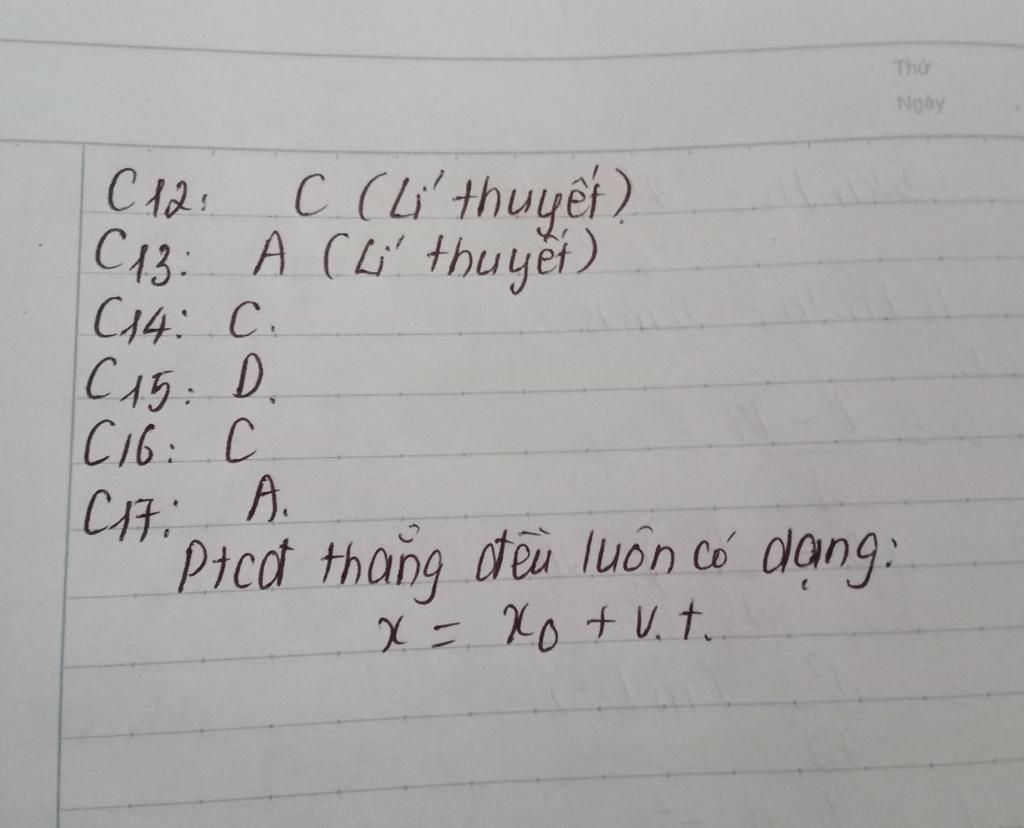 Thứ
Ngày
C12: C (Lí thuyết)
C13: A (Lí thuyết)
C14: C.
C15: D.
C16: C
C17: A.
Ptcđ thẳng đều luôn có dạng:
x = x₀ + v.t.